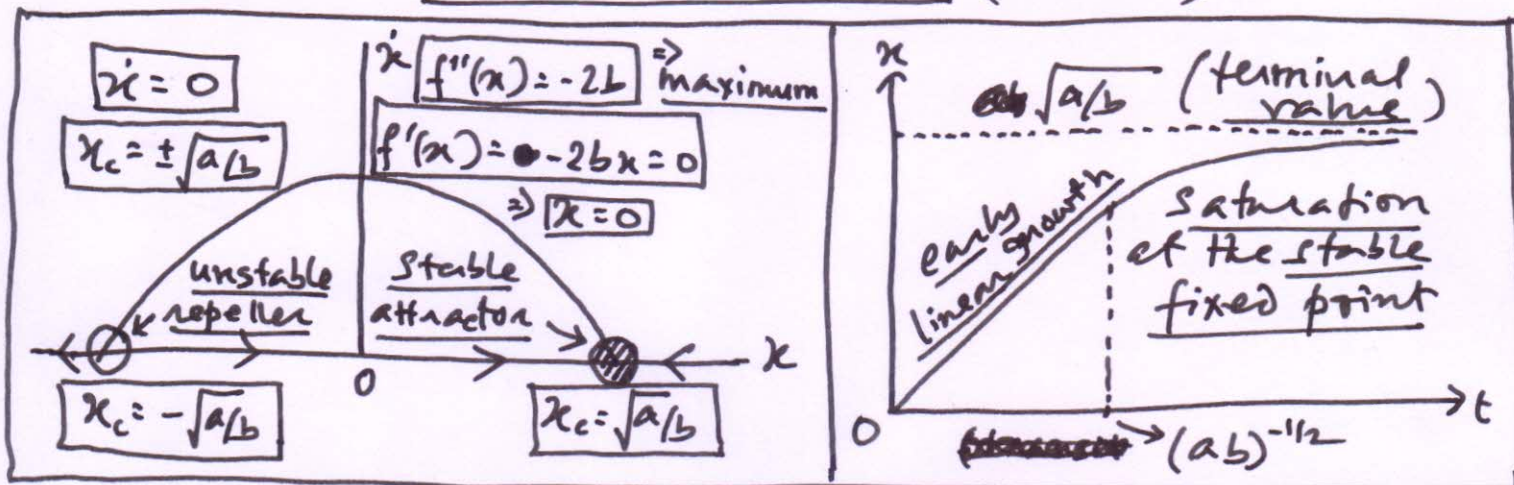 ẋ = 0
x_c = ±√a/b
ẋ
f''(x) = -2b ⇒ maximum
f'(x) = -2bx = 0
⇒ x = 0
unstable
repeller
stable
attractor
0
x
x_c = -√a/b
x_c = √a/b
x
√a/b (terminal
value)
early
linear growth
saturation
at the stable
fixed point
0
(ab)^-1/2
t